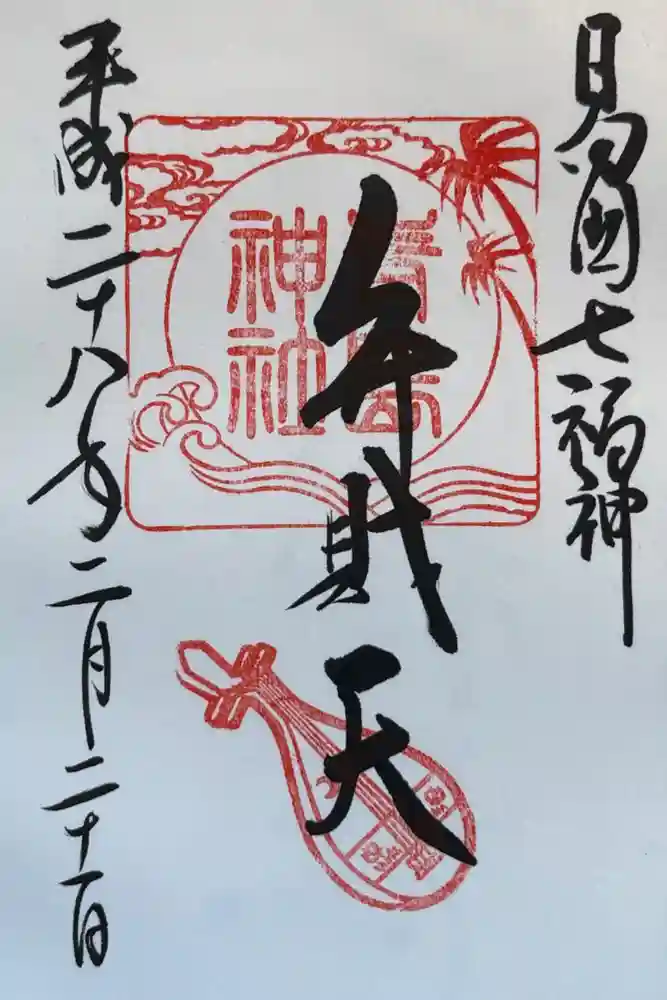 日向国七福神
弁財天
青島
神社
平成二十八年二月二十一日